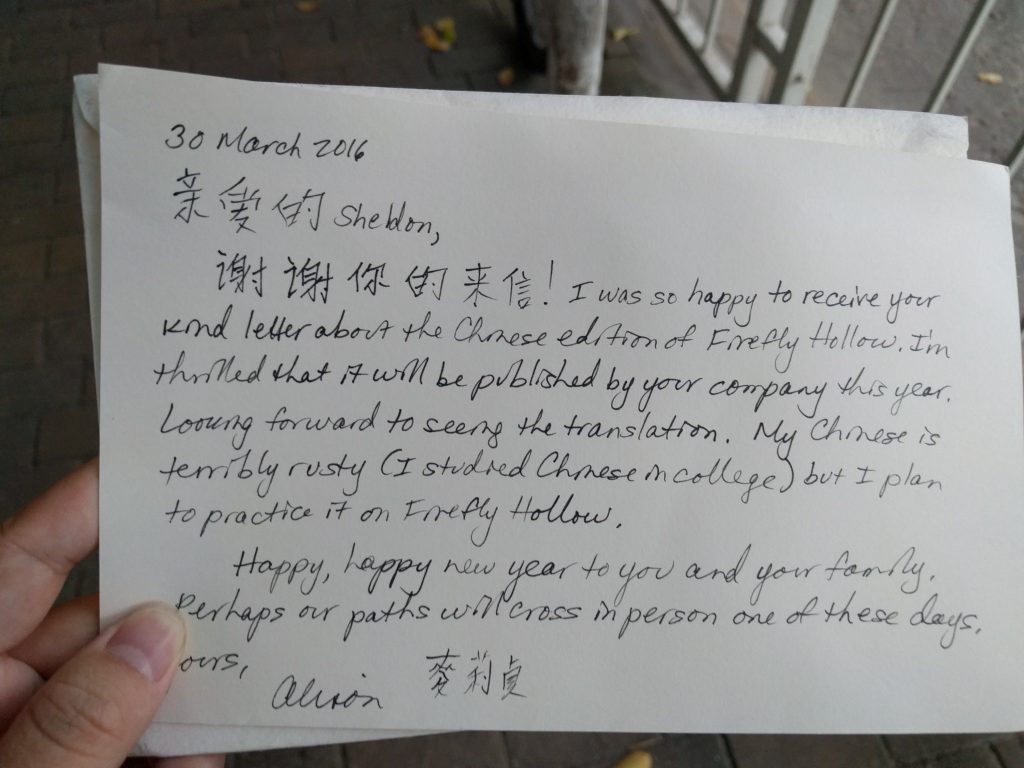 30 March 2016
亲爱的 Sheldon,
谢谢你的来信! I was so happy to receive your
kind letter about the Chinese edition of Firefly Hollow. I'm
thrilled that it will be published by your company this year.
Looking forward to seeing the translation. My Chinese is
terribly rusty (I studied Chinese in college) but I plan
to practice it on Firefly Hollow.
Happy, happy new year to you and your family.
Perhaps our paths will cross in person one of these days.
ours,
Alison 麥莉貞